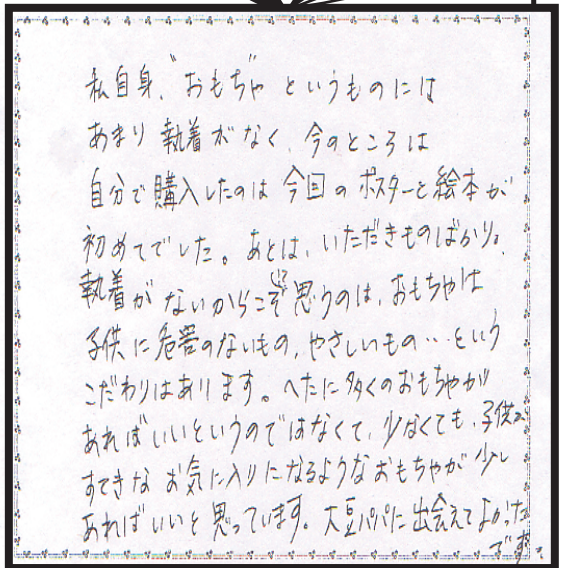 私自身、"おもちゃ"というものには
あまり執着がなく、今のところは
自分で購入したのは今回のポスターと絵本が
初めてでした。あとは、いただきものばかり。
執着がないからこそ思うのは、おもちゃは
子供に危害のないもの、やさしいもの…という
こだわりはあります。へたに多くのおもちゃが
あればいいというのではなくて、少なくても、子供が
すてきなお気に入りになるようなおもちゃが少し
あればいいと思っています。大豆パパに出会えてよかった
です。